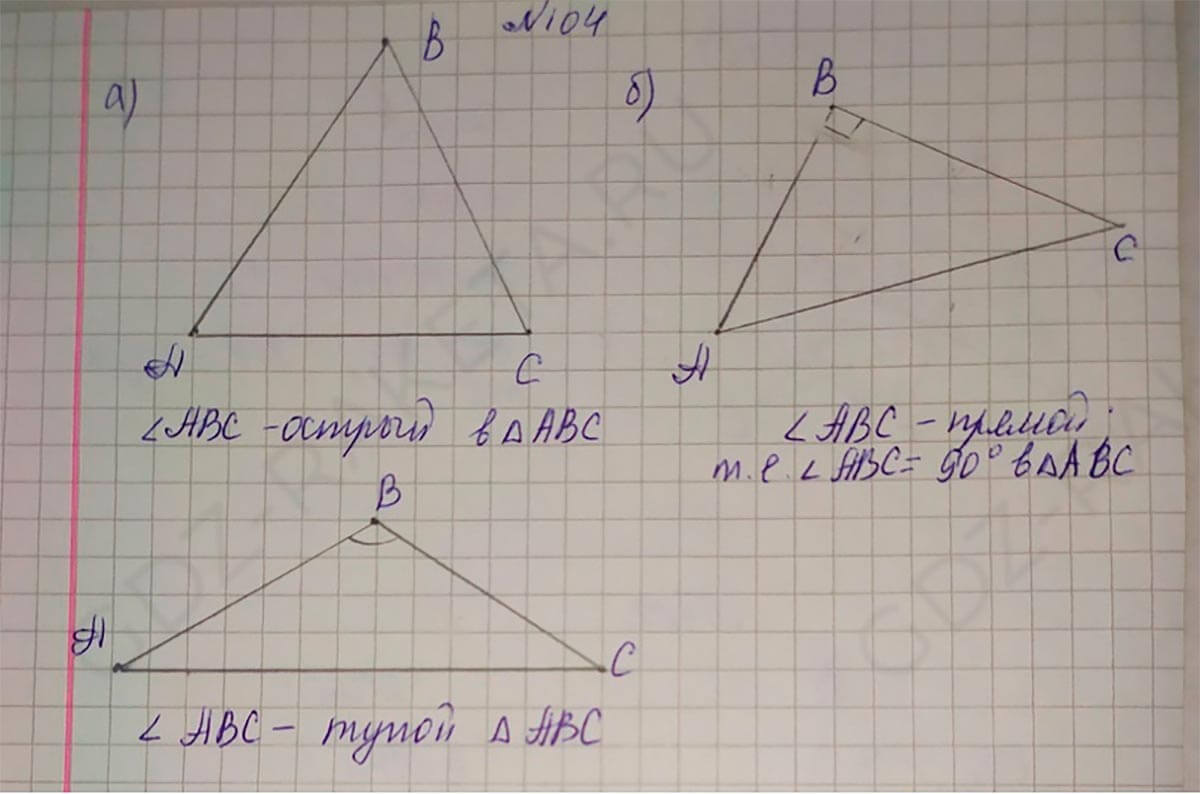 №104
а)
B
A
C
∠ABC - острый в △ABC
б)
B
A
C
∠ABC - прямой,
т.е. ∠ABC = 90° в △ABC
B
A
C
∠ABC - тупой △ABC
GDZ-RAKETA.RU